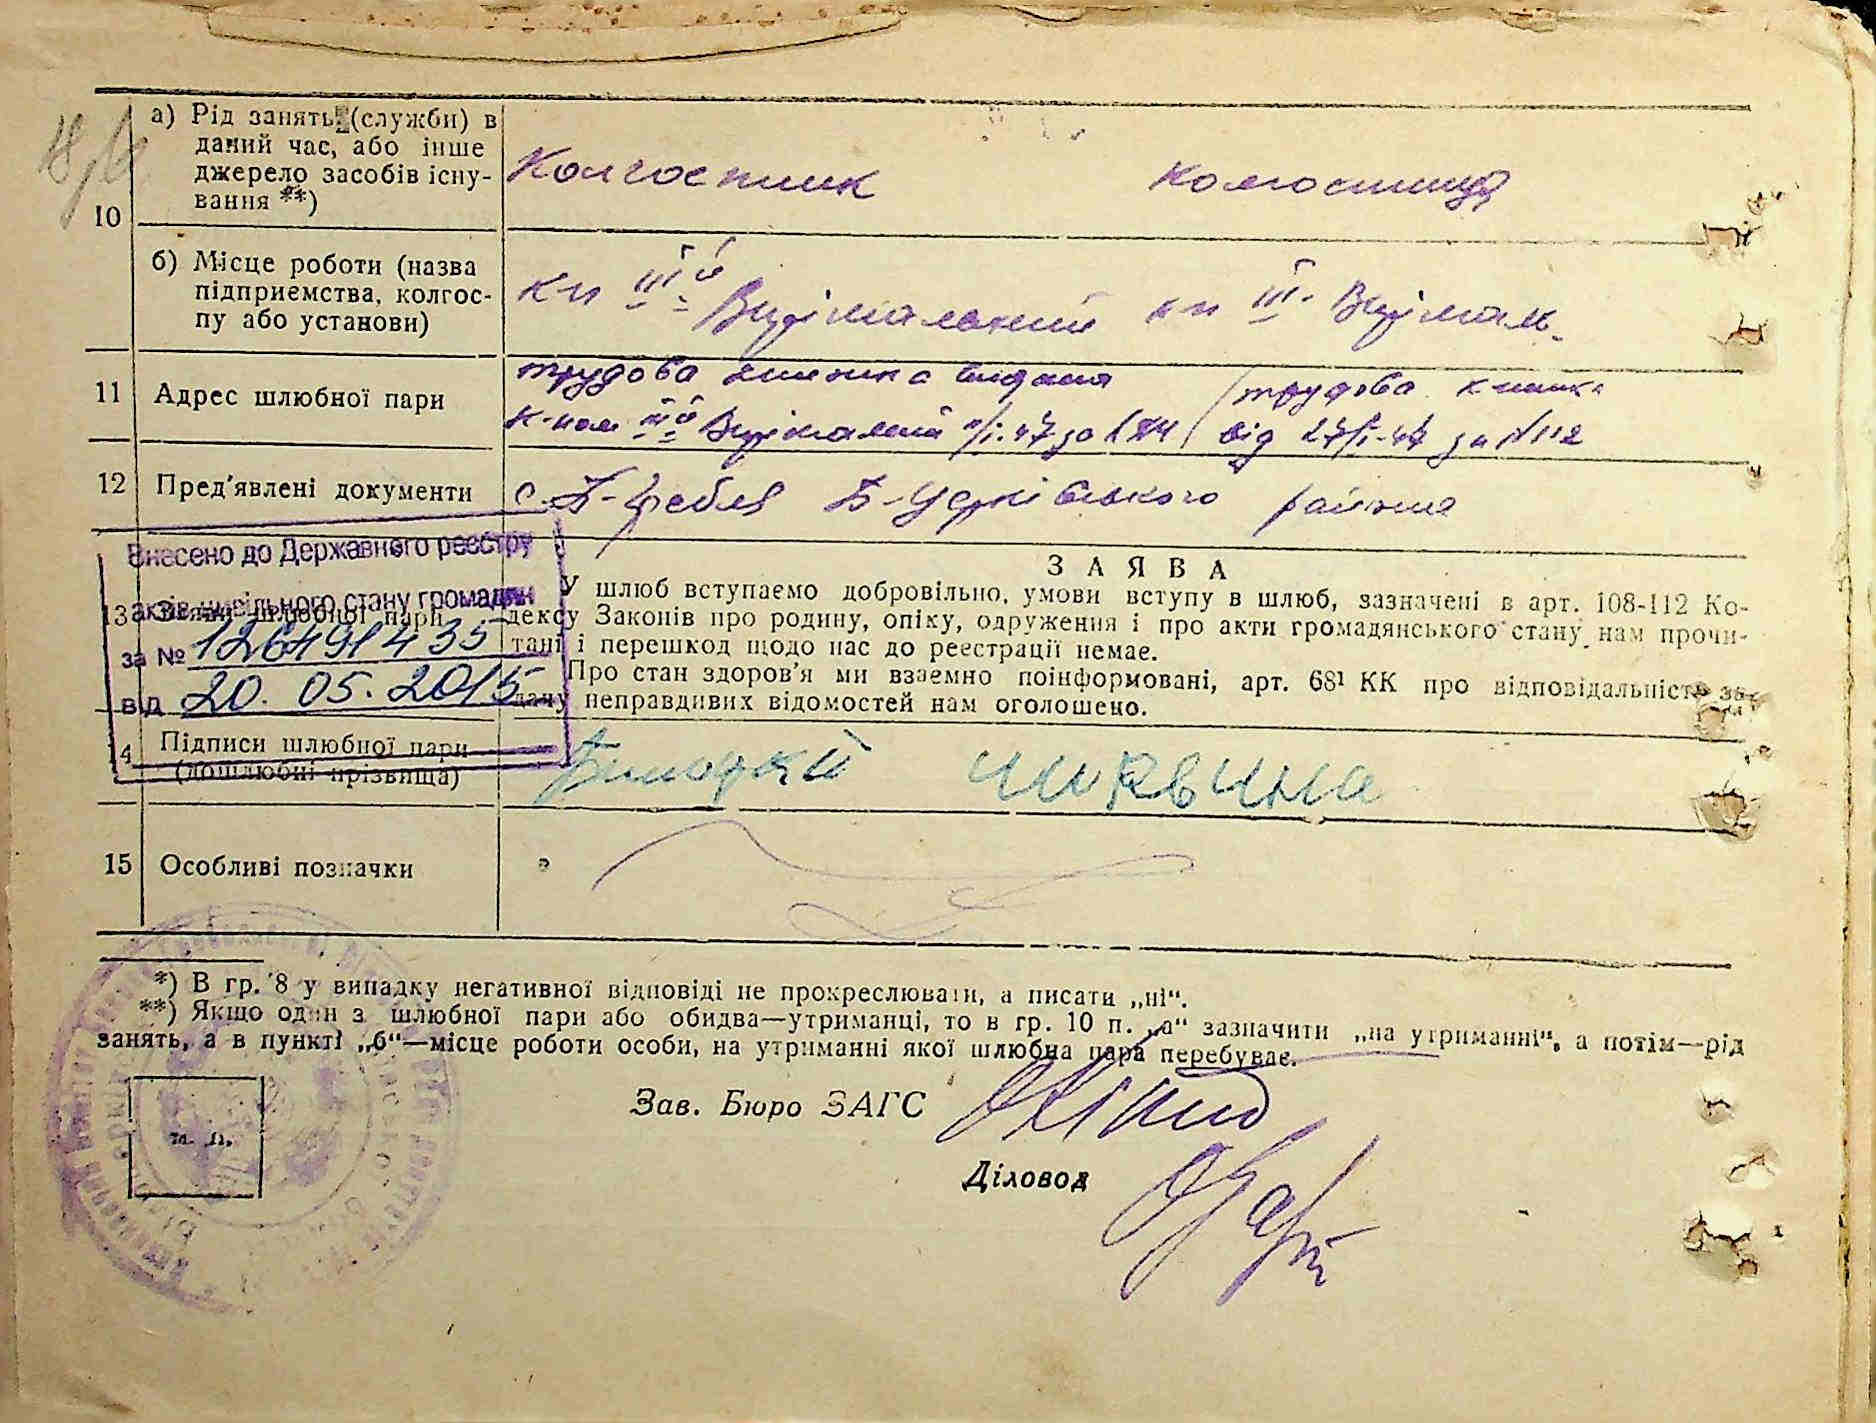 10
а) Рід занять (служби) в
даний час, або інше
джерело засобів існу-
вання **)
Колгоспник колгоспниця
б) Місце роботи (назва
підприємства, колгос-
пу або установи)
к-п ІІІ й Вирішальний к-п ІІІ Вирішаль-
11 Адрес шлюбної пари
трудова книжка видана трудова книжка
к-пом ІІІ й Вирішальний від 27/I-47 за №112
12 Пред'явлені документи
с. Б-Гребля Б-Церківського района
Внесено до Державного реєстру
актів цивільного стану громадян
за № 126491435
від 20. 05. 2015
13 Заява шлюбної пари
ЗАЯВА
У шлюб вступаємо добровільно, умови вступу в шлюб, зазначені в арт. 108-112 Ко-
дексу Законів про родину, опіку, одруження і про акти громадянського стану нам прочи-
тані і перешкод щодо нас до реєстрації немає.
Про стан здоров'я ми взаємно поінформовані, арт. 68¹ КК про відповідальність за
дачу неправдивих відомостей нам оголошено.
14 Підписи шлюбної пари
(дошлюбні прізвища)
Чирвина
15 Особливі позначки
*) В гр. 8 у випадку негативної відповіді не прокреслювати, а писати „ні“.
**) Якщо один з шлюбної пари або обидва—утриманці, то в гр. 10 п. „а“ зазначити „на утриманні“, а потім—рід
занять, а в пункті „б“—місце роботи особи, на утриманні якої шлюбна пара перебуває.
Зав. Бюро ЗАГС
Діловод